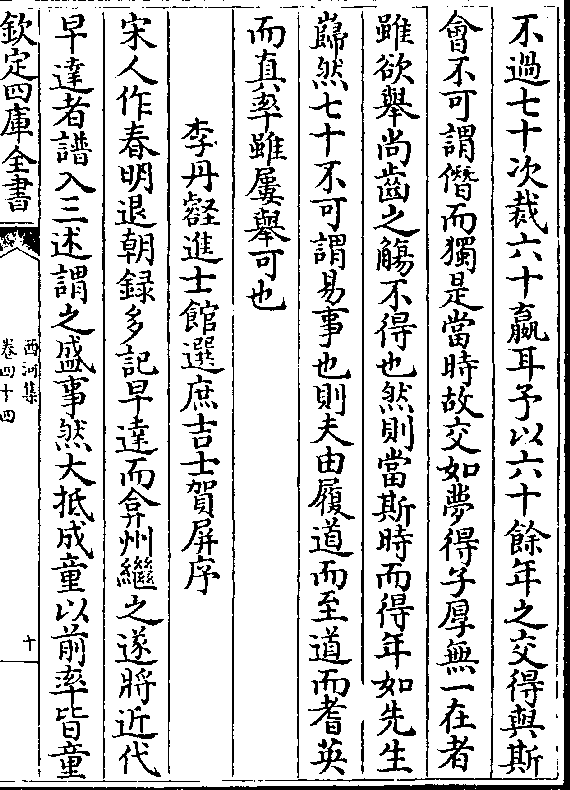 不過七十次裁六十嬴耳予以六十餘年之交得與斯
會不可謂僭而獨是當時故交如夢得子厚無一在者
雖欲舉尚齒之觴不得也然則當斯時而得年如先生
巋然七十不可謂易事也則夫由履道而至道而耆英
而真率雖屢舉可也
李丹壑進士館選庶吉士賀屏序
宋人作春明退朝録多記早達而弇州繼之遂將近代
早達者譜入三述謂之盛事然大抵成童以前率皆童
欽定四庫全書
西河集
卷四十四
十